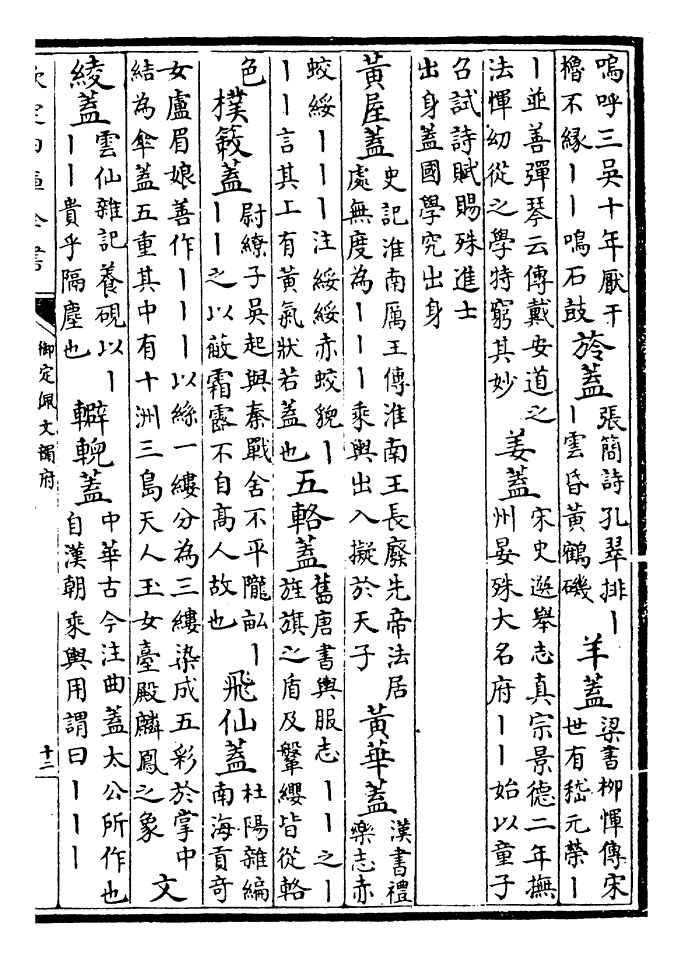 嗚呼三吳十年厭干
櫓不緣丨丨鳴石鼓
旍蓋
張簡詩孔翠排丨
丨雲昏黃鶴磯
羊蓋
梁書柳惲傳宋
世有嵇元榮丨
丨並善彈琴云傳戴安道之
法惲幼從之學特窮其妙
姜蓋
宋史選舉志真宗景德二年撫
州晏殊大名府丨丨始以童子
召試詩賦賜殊進士
出身蓋國學究出身
黃屋蓋
史記淮南厲王傳淮南王長廢先帝法居
處無度為丨丨丨乘輿出入擬於天子
黃華蓋
漢書禮
樂志赤
蛟綏丨丨丨注綏綏赤蛟貌丨
丨丨言其上有黃氣狀若蓋也
五輅蓋
舊唐書輿服志丨丨之丨
旌旗之盾及鞶纓皆從輅
色
樸簌蓋
尉繚子吳起與秦戰舍不平隴畝丨
丨丨之以蔽霜露不自高人故也
飛仙蓋
杜陽雜編
南海貢奇
女盧眉娘善作丨丨丨以絲一縷分為三縷染成五彩於掌中
結為傘蓋五重其中有十洲三島天人玉女臺殿麟鳳之象
文
綾蓋
雲仙雜記養硯以丨
丨丨貴乎隔塵也
䡶輗蓋
中華古今注曲蓋太公所作也
自漢朝乘輿用謂曰丨丨丨
欽定四庫全書
御定佩文韻府
十二